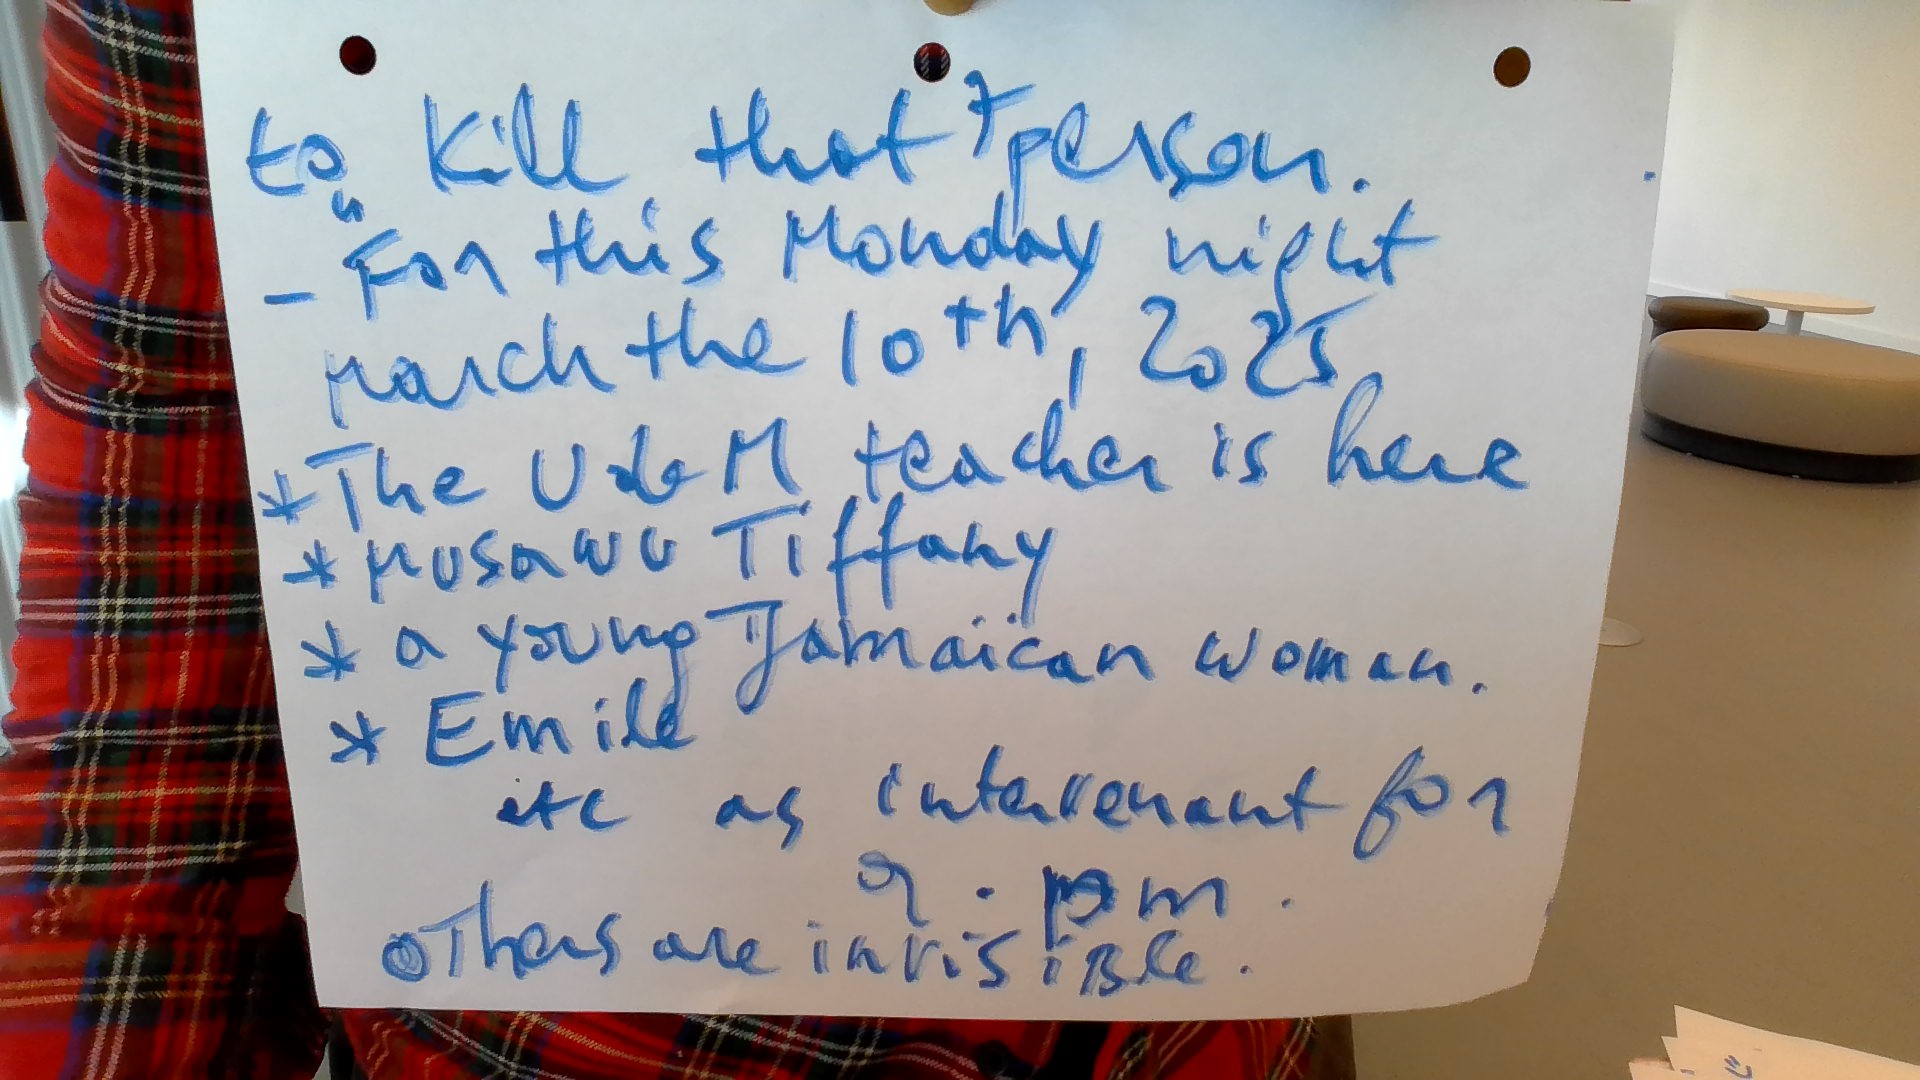 to Kill that person.
- "For this Monday night
March the 10th, 2025
* The UdeM teacher is here
* MUSAWU Tiffany
* a young Jamaïcan woman.
* Emile
etc as intervenant for
9. pm.
Others are invisible.